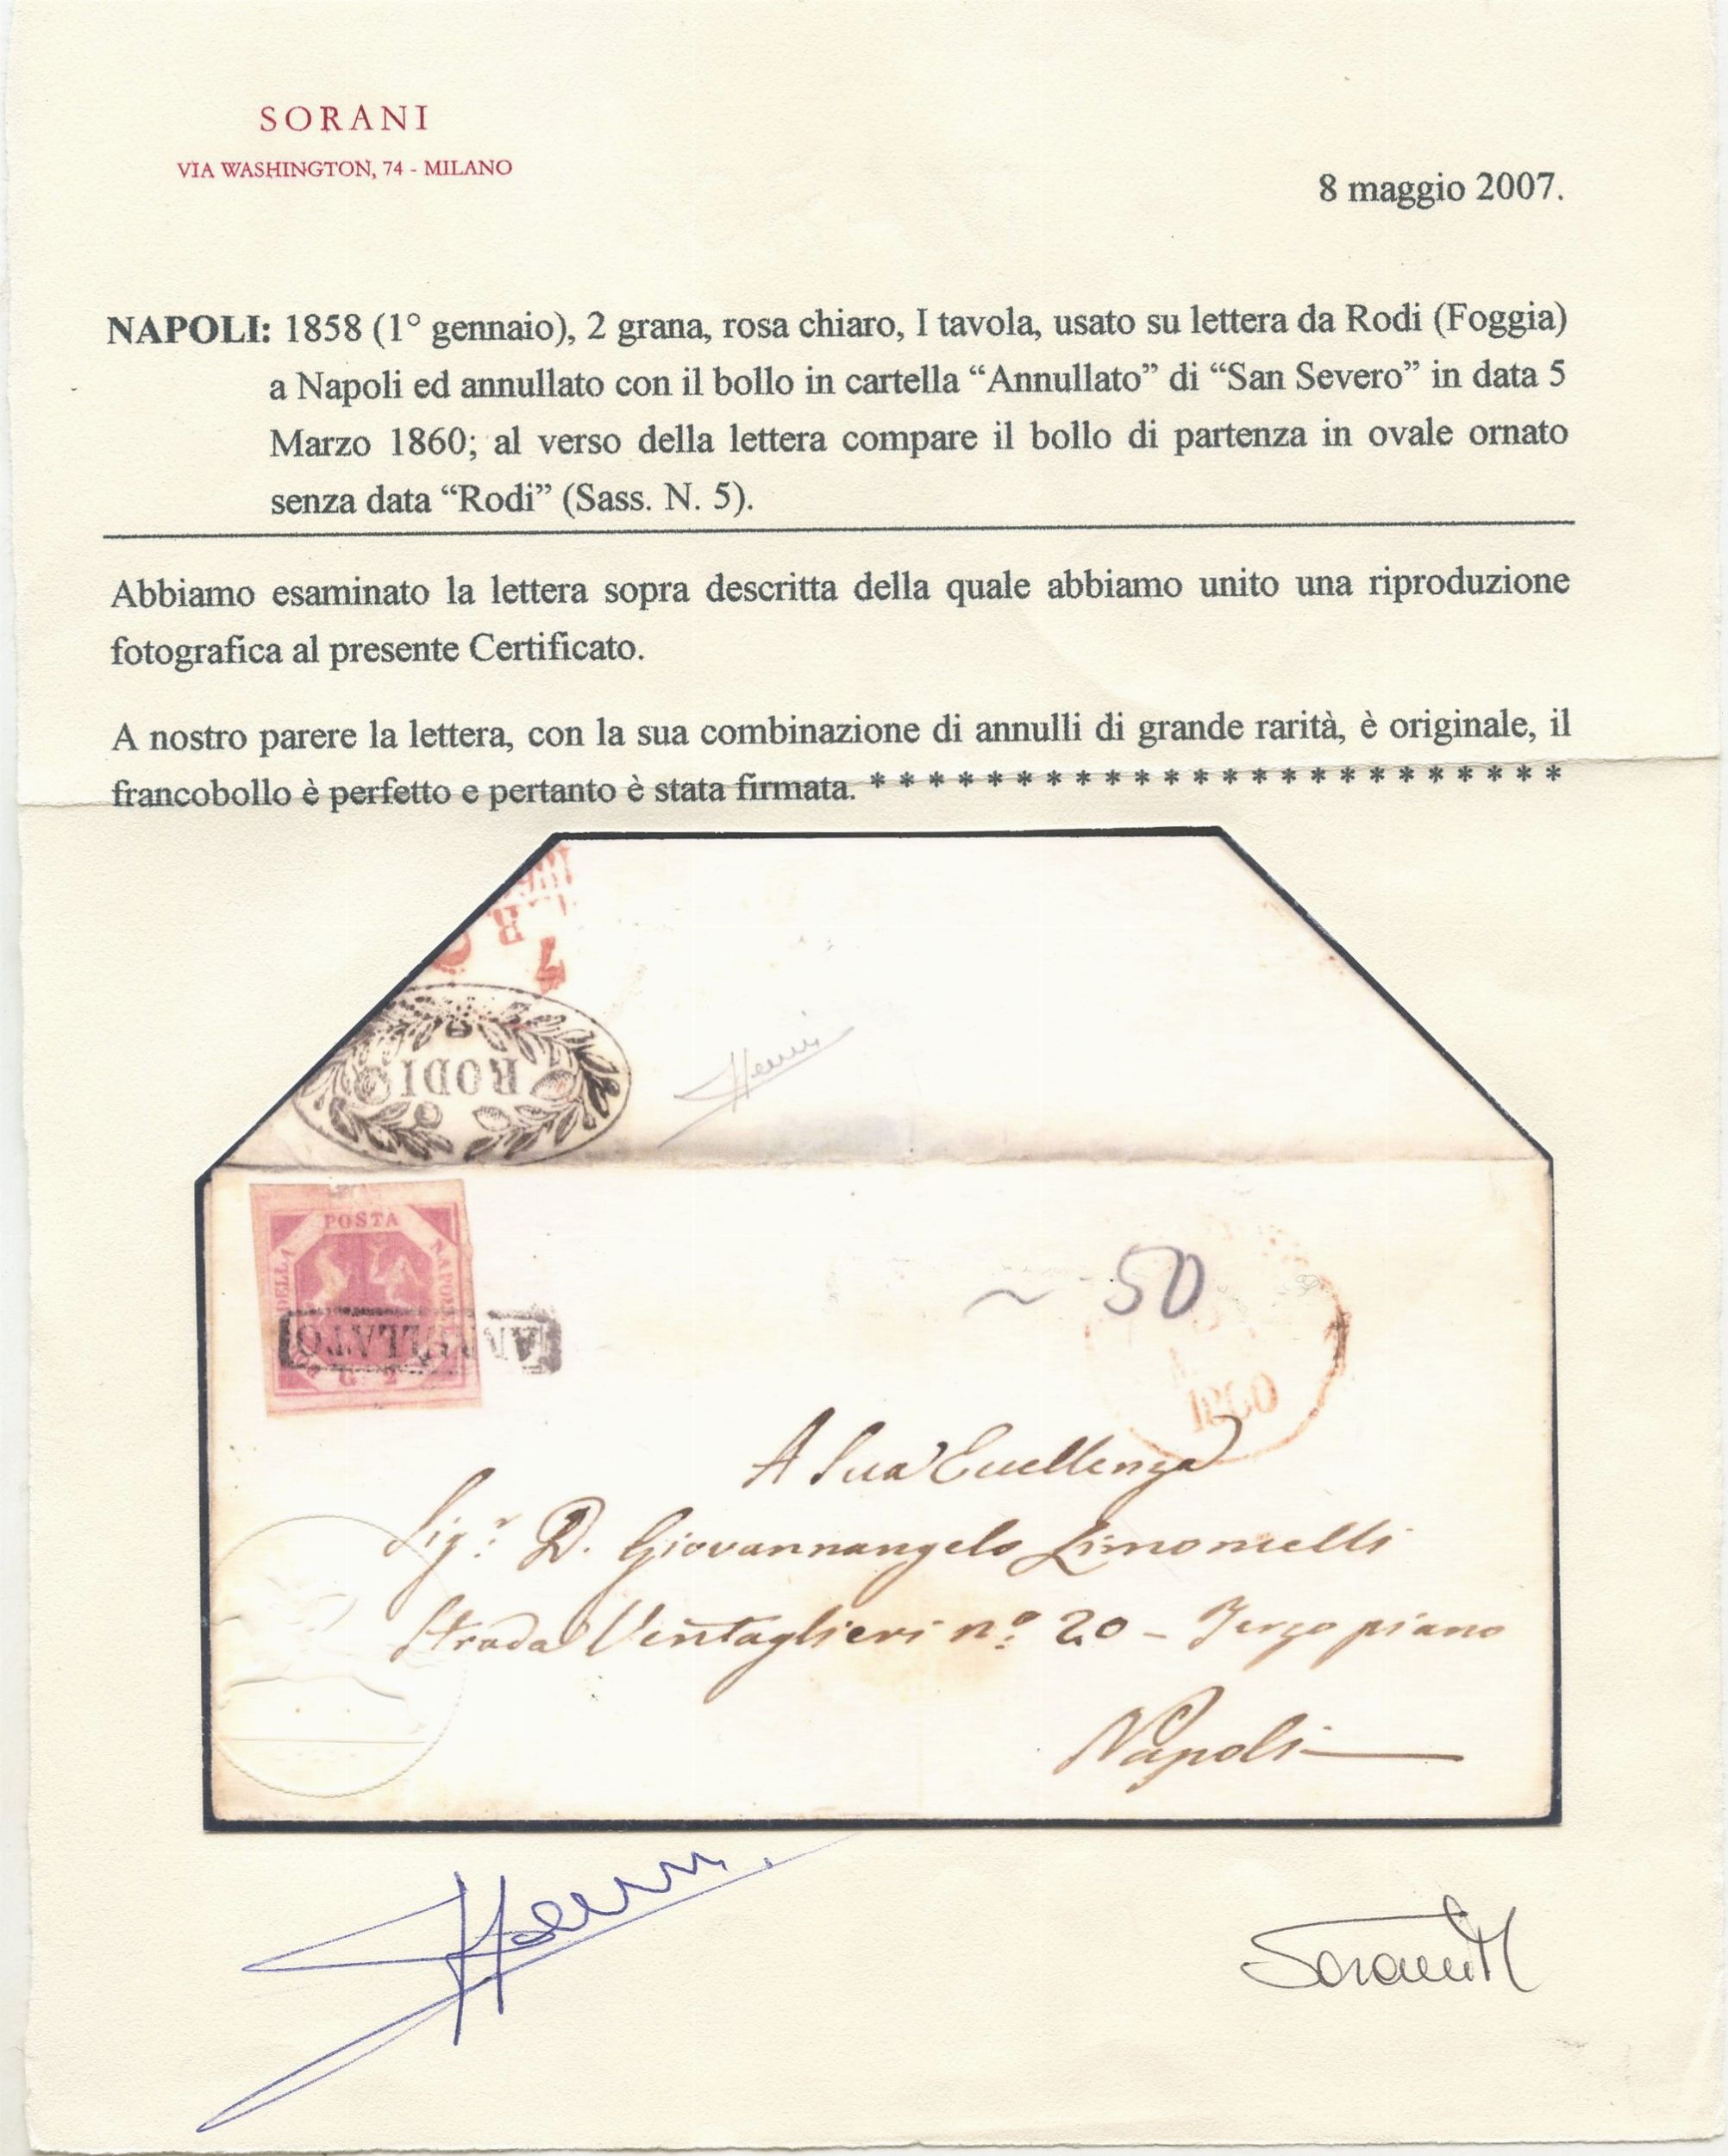 SORANI
VIA WASHINGTON, 74 - MILANO
8 maggio 2007.
NAPOLI: 1858 (1° gennaio), 2 grana, rosa chiaro, I tavola, usato su lettera da Rodi (Foggia)
a Napoli ed annullato con il bollo in cartella “Annullato” di “San Severo” in data 5
Marzo 1860; al verso della lettera compare il bollo di partenza in ovale ornato
senza data “Rodi” (Sass. N. 5).
Abbiamo esaminato la lettera sopra descritta della quale abbiamo unito una riproduzione
fotografica al presente Certificato.
A nostro parere la lettera, con la sua combinazione di annulli di grande rarità, è originale, il
francobollo è perfetto e pertanto è stata firmata. * * * * * * * * * * * * * * * * * * * * * * * *
RODI
POSTA
DELLA
NAPOLI
G. 2
ANNULLATO
~ 50
1860
A Sua Eccellenza
Sig.r D. Giovannangelo Limoncelli
Strada Ventaglieri n.o 20 - Terzo piano
Napoli